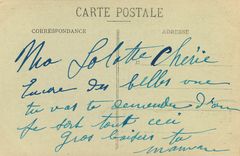 CARTE POSTALE
CORRESPONDANCE ADRESSE
Ma Lolotte Chérie
Encore des belles vue
tu vas te demander d'ou
je sort tout ceci
Gros baisers ta
maman